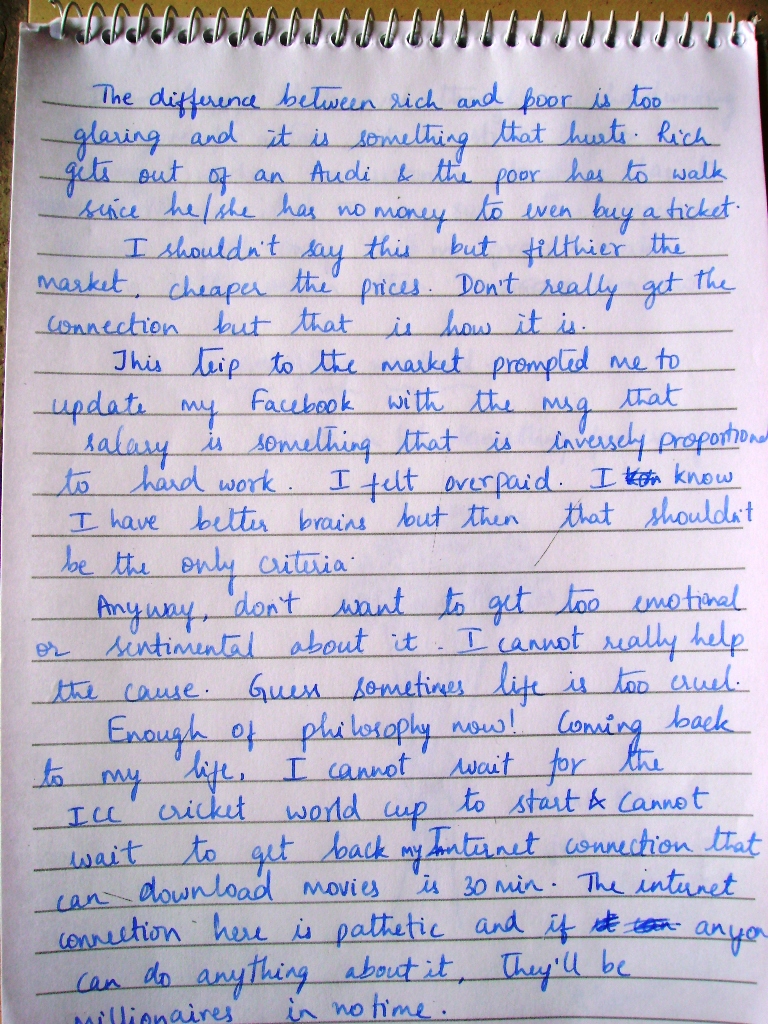 The difference between rich and poor is too
glaring and it is something that hurts. Rich
gets out of an Audi & the poor has to walk
since he/she has no money to even buy a ticket.
I shouldn't say this but filthier the
market, cheaper the prices. Don't really get the
connection but that is how it is.
This trip to the market prompted me to
update my Facebook with the msg that
salary is something that is inversely proportional
to hard work. I felt overpaid. I know
I have better brains but then that shouldn't
be the only criteria.
Anyway, don't want to get too emotional
or sentimental about it. I cannot really help
the cause. Guess sometimes life is too cruel.
Enough of philosophy now! Coming back
to my life, I cannot wait for the
ICC cricket world cup to start & cannot
wait to get back my Internet connection that
can download movies is 30 min. The internet
connection here is pathetic and if anyon
can do anything about it, they'll be
millionaires in no time.